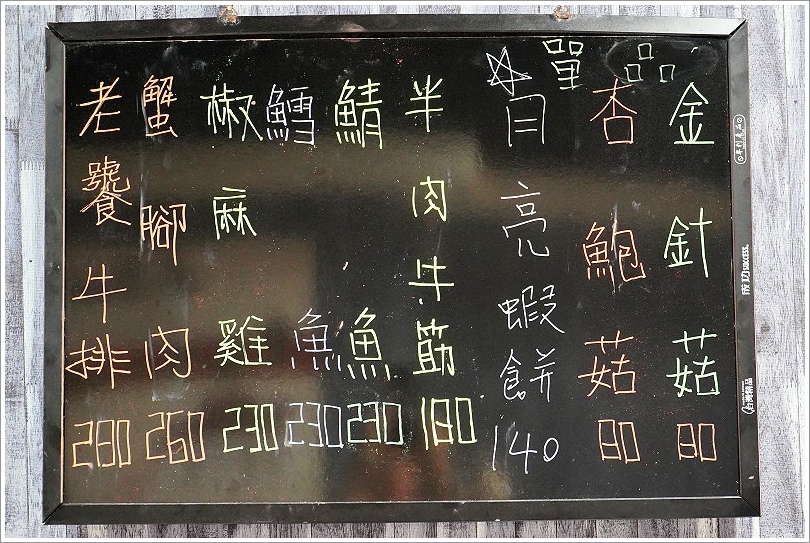 單品
金針菇 80
杏鮑菇 80
☆月亮蝦餅 140
半肉牛筋 180
鯖魚 230
鱈魚 230
椒麻雞 230
蟹腳肉 260
老饕牛排 280
成功 success
台灣精品